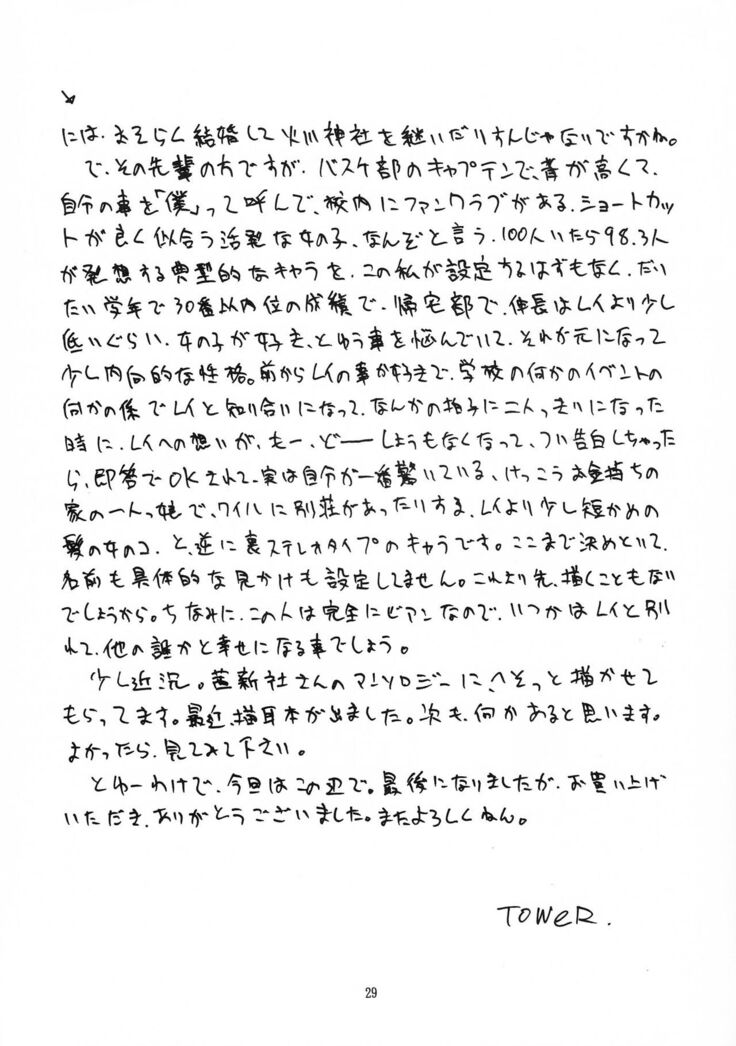 には、おそらく結婚して火川神社を継いだりすんじゃないですかね。
で、その先輩の方ですが、バスケ部のキャプテンで、背が高くて、
自分の事を「僕」って呼んで、校内にファンクラブがある、ショートカッ
トが良く似合う活発な女の子、なんぞと言う、100人いたら98.3人
が発想する典型的なキャラを、この私が設定するはずもなく、だい
たい学年で30番以内位の成績で、帰宅部で、伸長はレイより少し
低いぐらい、女の子が好き、とゆう事を悩んでいて、それが元になって
少し内向的な性格。前からレイの事が好きで、学校の何かのイベントの
何かの係でレイと知り合いになって、なんかの拍子に二人っきりになった
時に、レイへの想いが、もー、どーしようもなくなって、つい告白しちゃった
ら、即答でOKされて、実は自分が一番驚いている、けっこうお金持ちの
家の一人っ娘で、ワイハに別荘があったりする、レイより少し短かめの
髪の女のコ、と、逆に裏ステレオタイプのキャラです。ここまで決めといて、
名前も具体的な見かけも設定してません。これより先、描くこともない
でしょうから。ちなみに、この人は完全にビアンなので、いつかはレイと別
れて、他の誰かと幸せになる事でしょう。
少し近況。茜新社さんのアンソロジーに、へそっと描かせて
もらってます。最近、猫耳本が出ました。次も、何かあると思います。
よかったら、見てみて下さい。
とゆーわけで、今回はこの辺で。最後になりましたが、お買い上げ
いただき、ありがとうございました。またよろしくねん。
TOWeR.
29